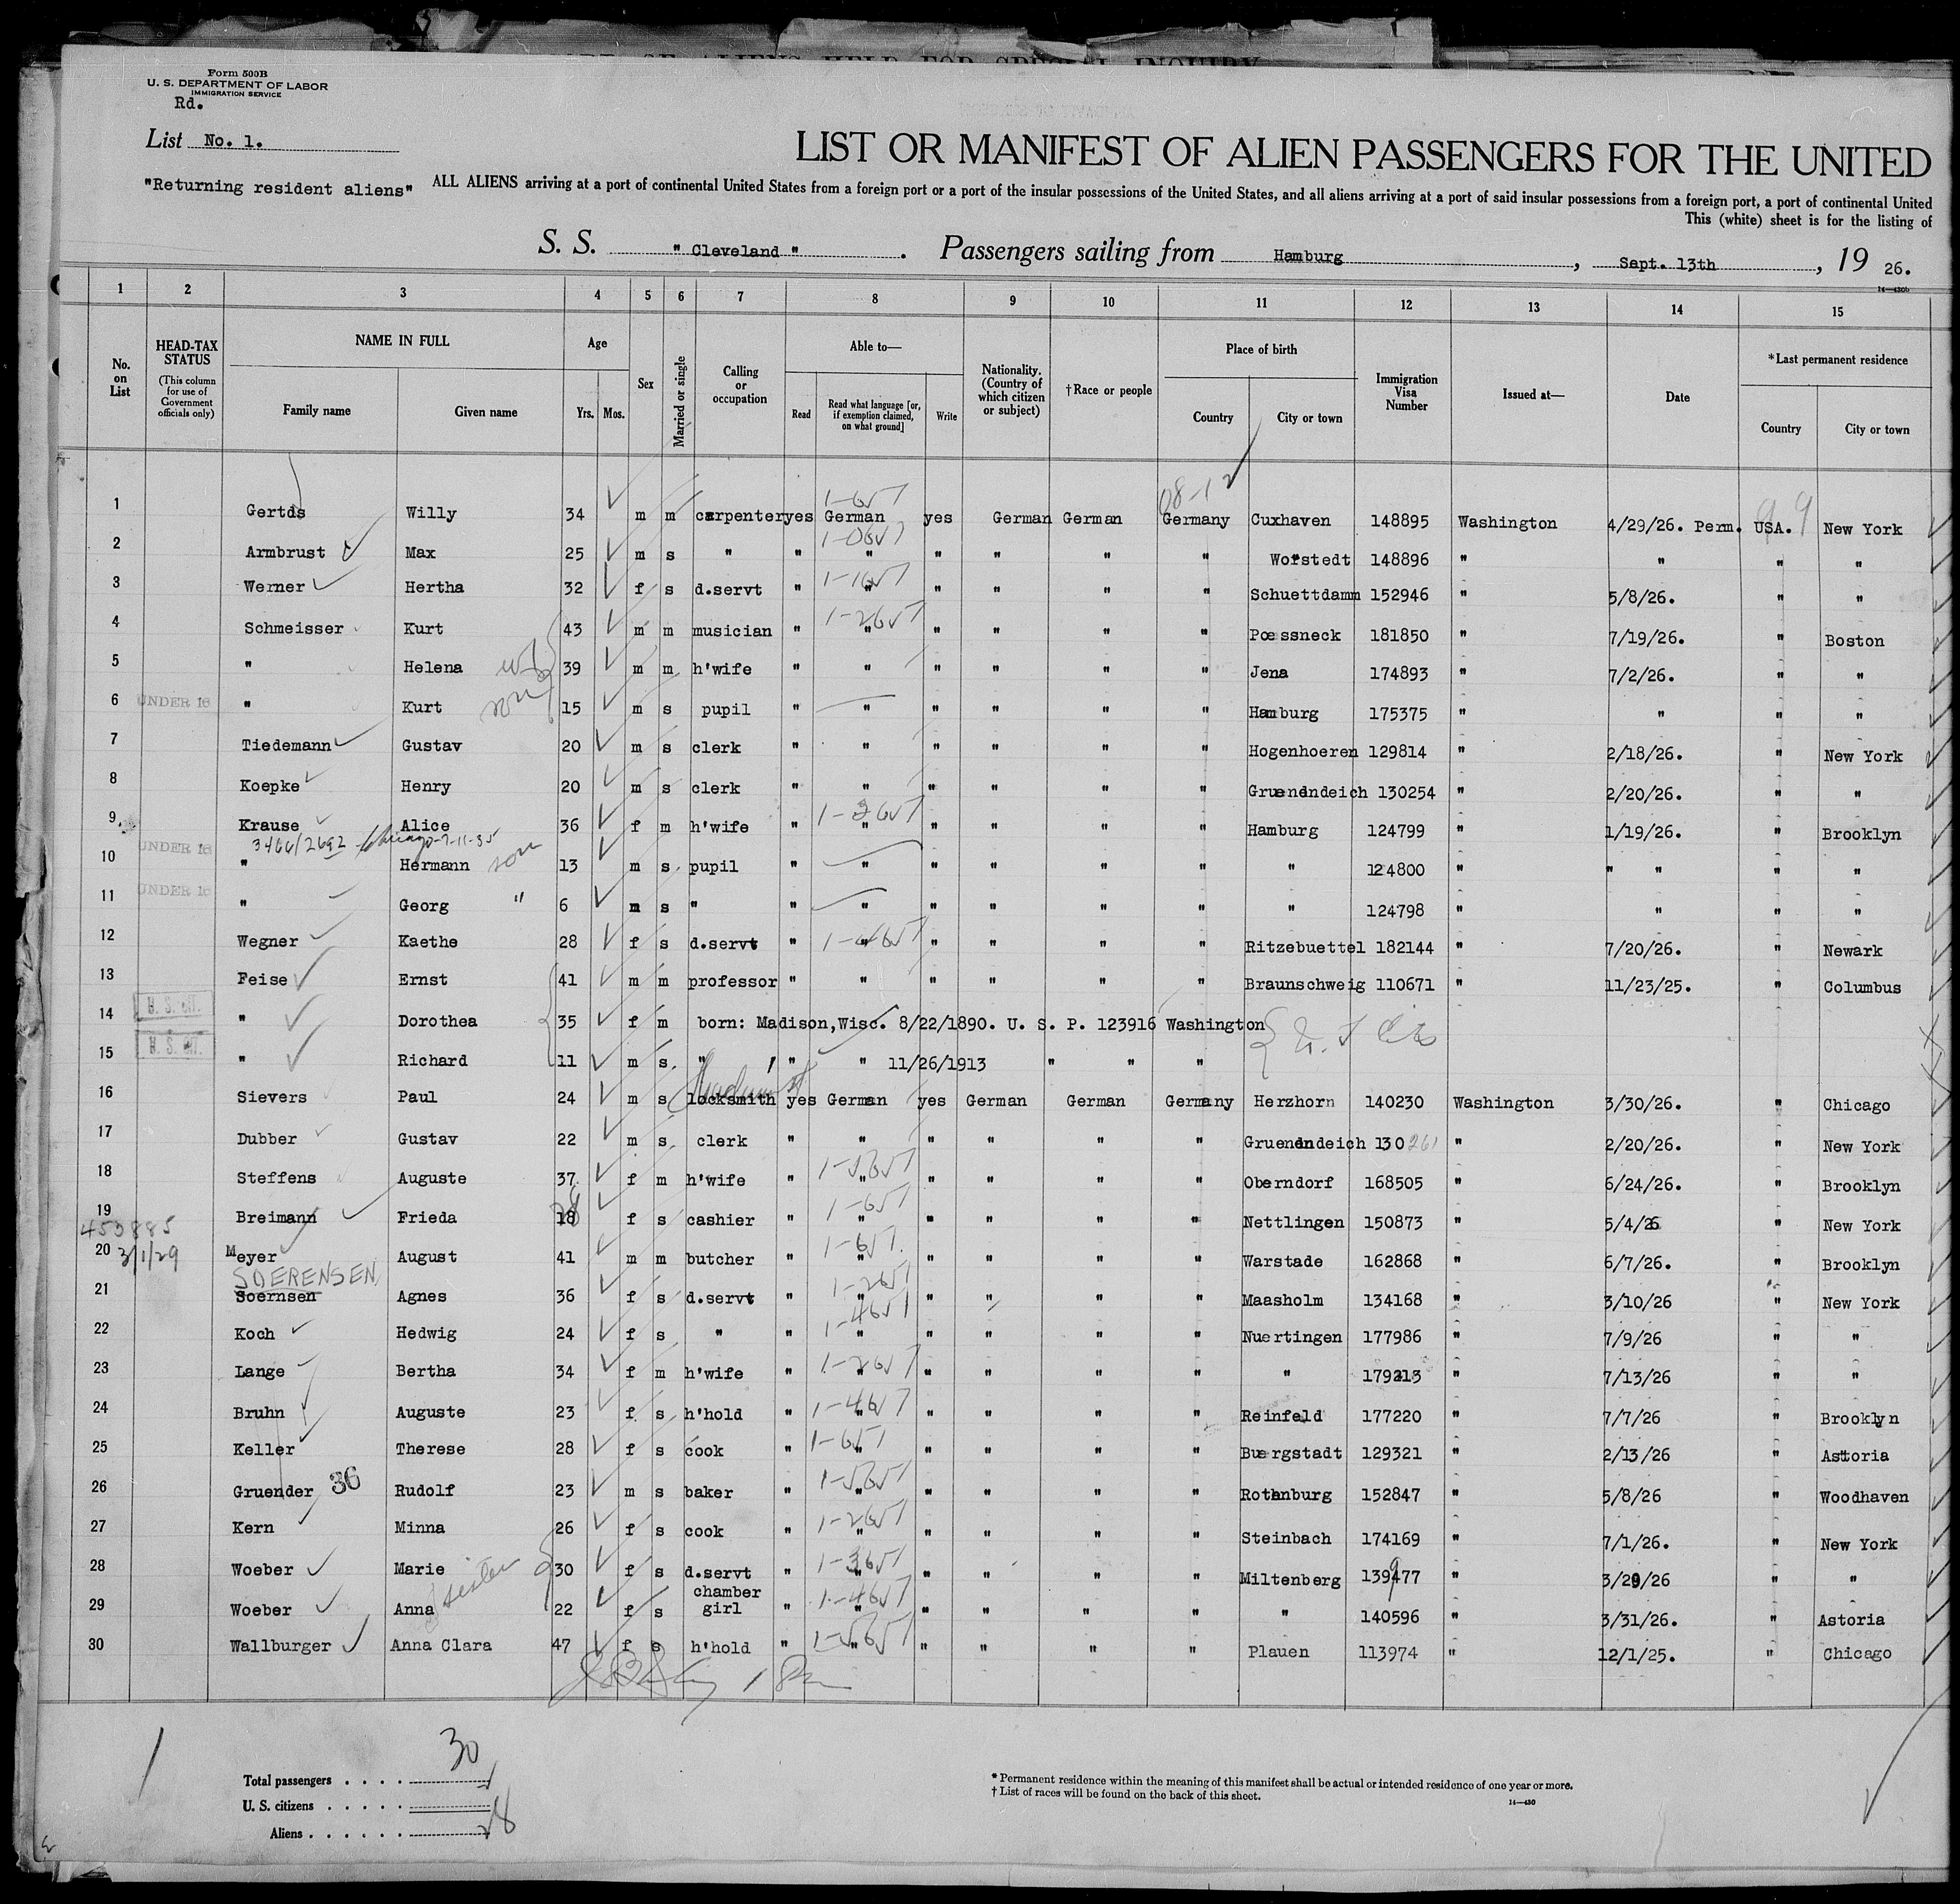 Form 500B
U. S. DEPARTMENT OF LABOR
IMMIGRATION SERVICE
Rd.
List No. 1.
LIST OR MANIFEST OF ALIEN PASSENGERS FOR THE UNITED
"Returning resident aliens" ALL ALIENS arriving at a port of continental United States from a foreign port or a port of the insular possessions of the United States, and all aliens arriving at a port of said insular possessions from a foreign port, a port of continental United
This (white) sheet is for the listing of
S. S. "Cleveland". Passengers sailing from Hamburg, Sept. 13th, 19 26.
14—430b
1 2 3 4 5 6 7 8 9 10 11 12 13 14 15
No. on List HEAD-TAX STATUS (This column for use of Government officials only) NAME IN FULL Family name Given name Age Yrs. Mos. Sex Married or single Calling or occupation Able to— Read Read what language [or, if exemption claimed, on what ground] Write Nationality. (Country of which citizen or subject) †Race or people Place of birth Country City or town Immigration Visa Number Issued at— Date *Last permanent residence Country City or town
1 Gertds Willy 34 m m carpenter yes German yes German German Germany Cuxhaven 148895 Washington 4/29/26. Perm. USA. New York
2 Armbrust Max 25 m s " " " " " " " Worstedt 148896 " " " "
3 Werner Hertha 32 f s d.servt " " " " " " Schuettdamm 152946 " 5/8/26. " "
4 Schmeisser Kurt 43 m m musician " " " " " " Poessneck 181850 " 7/19/26. " Boston
5 " Helena wf 39 m m h'wife " " " " " " Jena 174893 " 7/2/26. " "
6 UNDER 16 " Kurt son 15 m s pupil " " " " " " Hamburg 175375 " " " "
7 Tiedemann Gustav 20 m s clerk " " " " " " Hogenhoeren 129814 " 2/18/26. " New York
8 Koepke Henry 20 m s clerk " " " " " " Gruenendeich 130254 " 2/20/26. " "
9. Krause Alice 36 f m h'wife " " " " " " Hamburg 124799 " 1/19/26. " Brooklyn
3466/2692 Chicago-7-11-35
10 UNDER 16 " Hermann son 13 m s pupil " " " " " " " 124800 " " " " "
11 UNDER 16 " Georg " 6 m s " " " " " " " " 124798 " " " "
12 Wegner Kaethe 28 f s d.servt " " " " " " Ritzebuettel 182144 " 7/20/26. " Newark
13 Feise Ernst 41 m m professor " " " " " " Braunschweig 110671 " 11/23/25. " Columbus
14 U. S. cit. " Dorothea 35 f m born: Madison, Wisc. 8/22/1890. U. S. P. 123916 Washington
15 U. S. cit. " Richard 11 m s " " " 11/26/1913 " " "
16 Sievers Paul 24 m s locksmith yes German yes German German Germany Herzhorn 140230 Washington 3/30/26. " Chicago
17 Dubber Gustav 22 m s clerk " " " " " " Gruenendeich 130261 " 2/20/26. " New York
18 Steffens Auguste 37 f m h'wife " " " " " " Oberndorf 168505 " 6/24/26. " Brooklyn
19 Breimann Frieda 18 28 f s cashier " " " " " " Nettlingen 150873 " 5/4/26 " New York
453885
20 3/1/29 Meyer August 41 m m butcher " " " " " " Warstade 162868 " 6/7/26. " Brooklyn
SOERENSEN
21 Soernsen Agnes 36 f s d.servt " " " " " " Maasholm 134168 " 3/10/26 " New York
22 Koch Hedwig 24 f s " " " " " " " Nuertingen 177986 " 7/9/26 " "
23 Lange Bertha 34 f m h'wife " " " " " " " 179213 " 7/13/26 " "
24 Bruhn Auguste 23 f s h'hold " " " " " " Reinfeld 177220 " 7/7/26 " Brooklyn
25 Keller Therese 28 f s cook " " " " " " Buergstadt 129321 " 2/13/26 " Astoria
26 Gruender 36 Rudolf 23 m s baker " " " " " " Rotenburg 152847 " 5/8/26 " Woodhaven
27 Kern Minna 26 f s cook " " " " " " Steinbach 174169 " 7/1/26. " New York
28 Woeber Marie 30 f s d.servt " " " " " " Miltenberg 139477 " 3/29/26 " "
29 Woeber Anna sister 22 f s chamber girl " " " " " " " 140596 " 3/31/26. " Astoria
30 Wallburger Anna Clara 47 f s h'hold " " " " " " Plauen 113974 " 12/1/25. " Chicago
Total passengers . . . . 30
U. S. citizens . . . . .
Aliens . . . . . . 28
* Permanent residence within the meaning of this manifest shall be actual or intended residence of one year or more.
† List of races will be found on the back of this sheet.
14—430